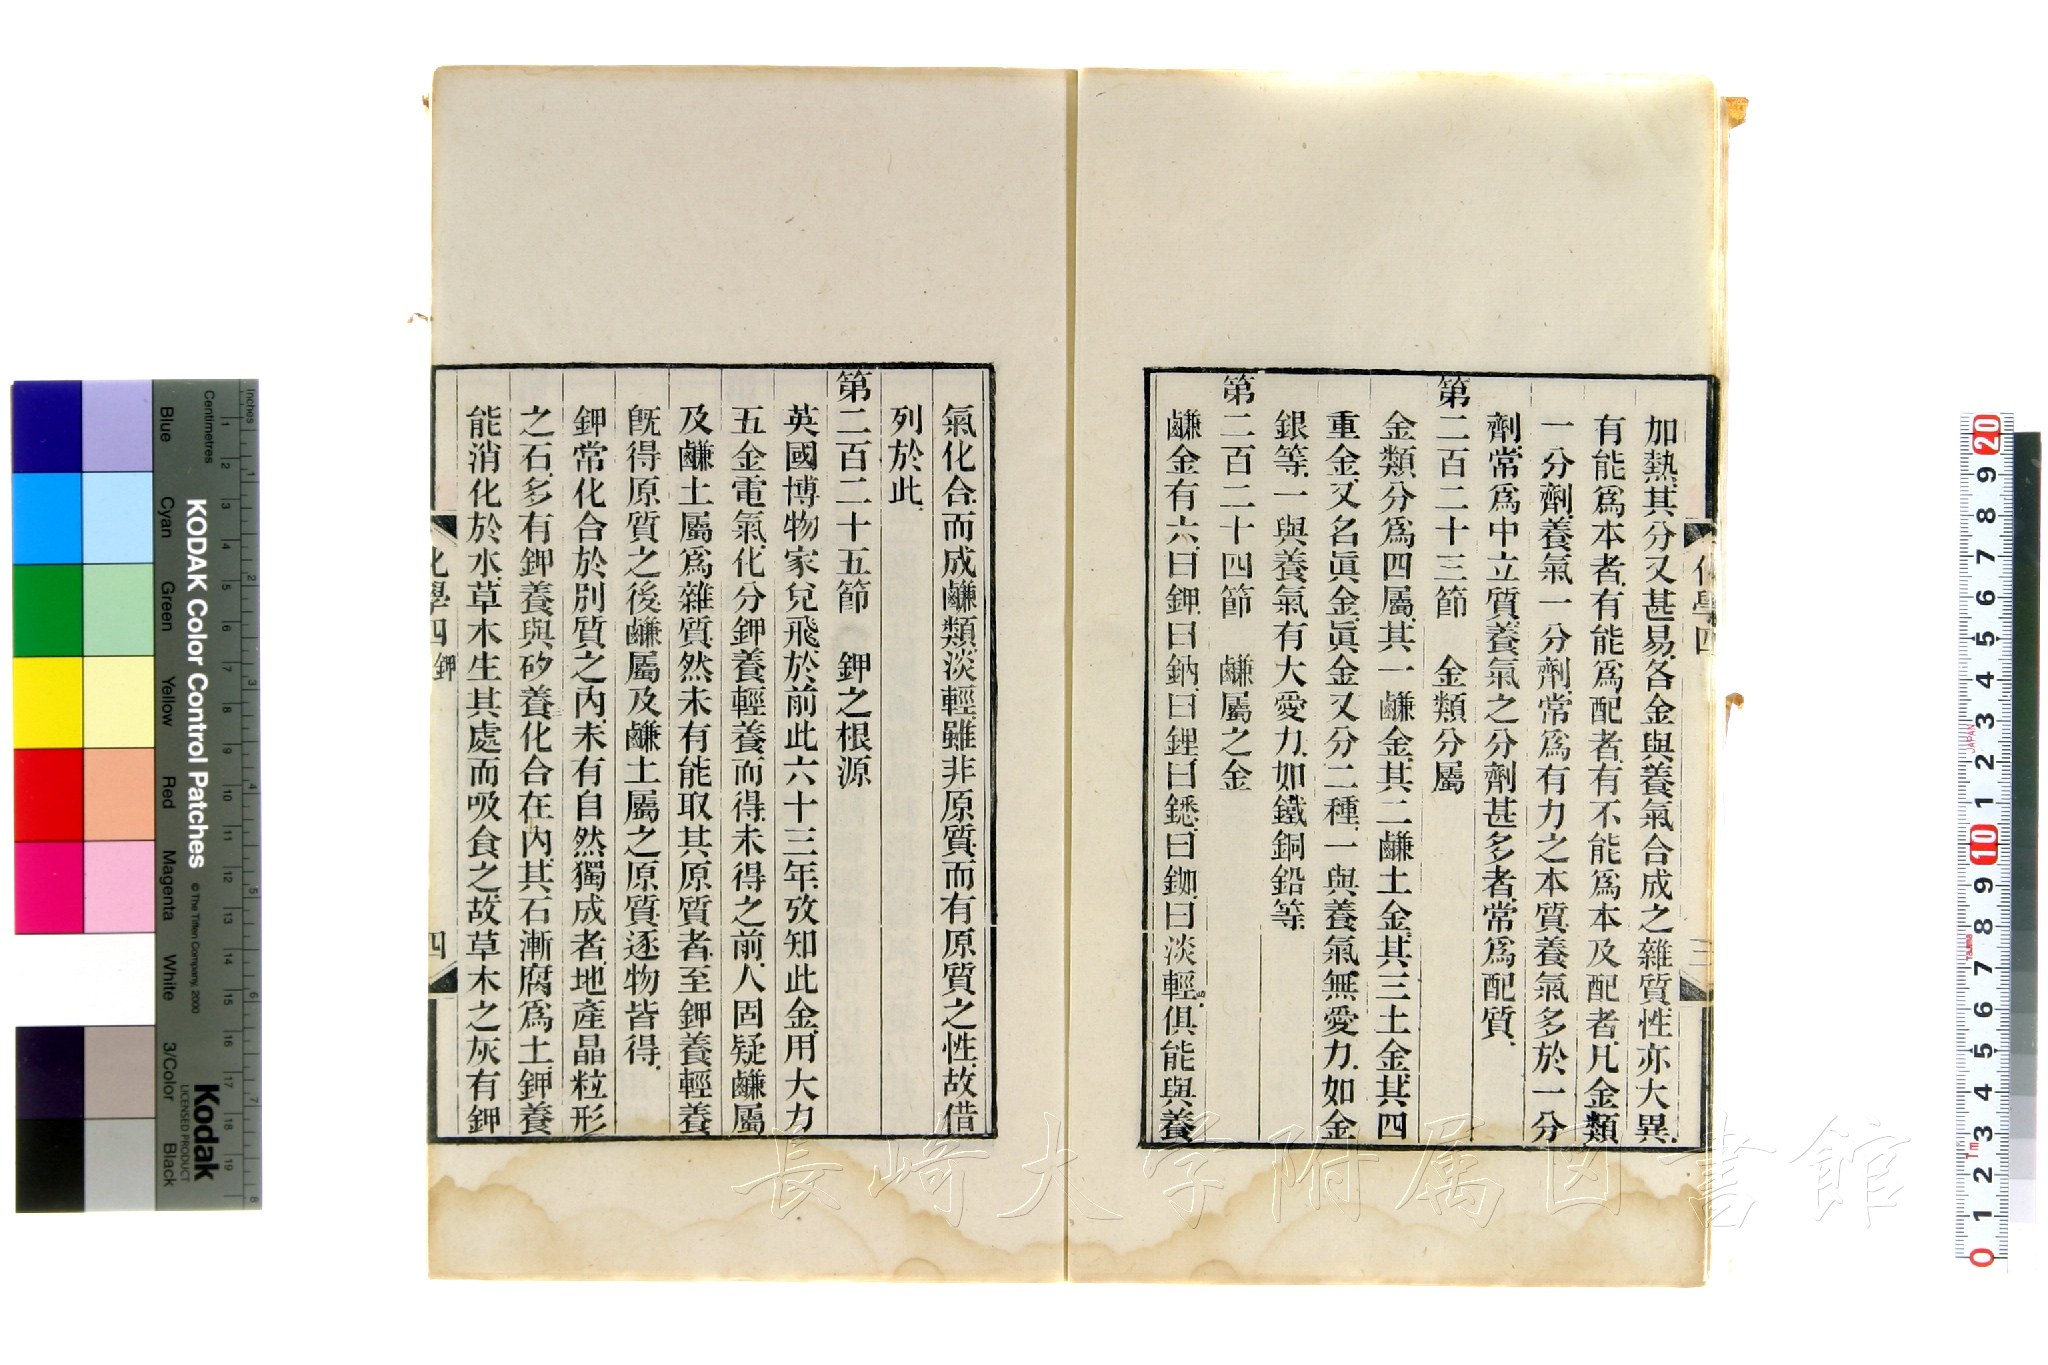 加熱其分又甚易各金與養氣合成之雜質性亦大異
有能爲本者有能爲配者有不能爲本及配者凡金類
一分劑養氣一分劑常爲有力之本質養氣多於一分
劑常爲中立質養氣之分劑甚多者常爲配質
第二百二十三節　金類分屬
金類分爲四屬其一鹻金其二鹻土金其三土金其四
重金又名眞金眞金又分二種一與養氣無愛力如金
銀等一與養氣有大愛力如鐵銅鉛等
第二百二十四節　鹻屬之金
鹻金有六曰鉀曰鈉曰鋰曰鏭曰銣曰淡輕俱能與養
氣化合而成鹻類淡輕雖非原質而有原質之性故借
列於此
第二百二十五節　鉀之根源
英國博物家兌飛於前此六十三年攷知此金用大力
五金電氣化分鉀養輕養而得未得之前人固疑鹻屬
及鹻土屬爲雜質然未有能取其原質者至鉀養輕養
旣得原質之後鹻屬及鹻土屬之原質逐物皆得
鉀常化合於別質之內未有自然獨成者地產晶粒形
之石多有鉀養與矽養化合在內其石漸腐爲土鉀養
能消化於水草木生其處而吸食之故草木之灰有鉀
化學四 鉀
四
化學四
三
長崎大学附属図書館
KODAK Color Control Patches
© The Tiffen Company, 2000
Kodak
LICENSED PRODUCT
Inches
Centimetres
Blue
Cyan
Green
Yellow
Red
Magenta
White
3/Color
Black